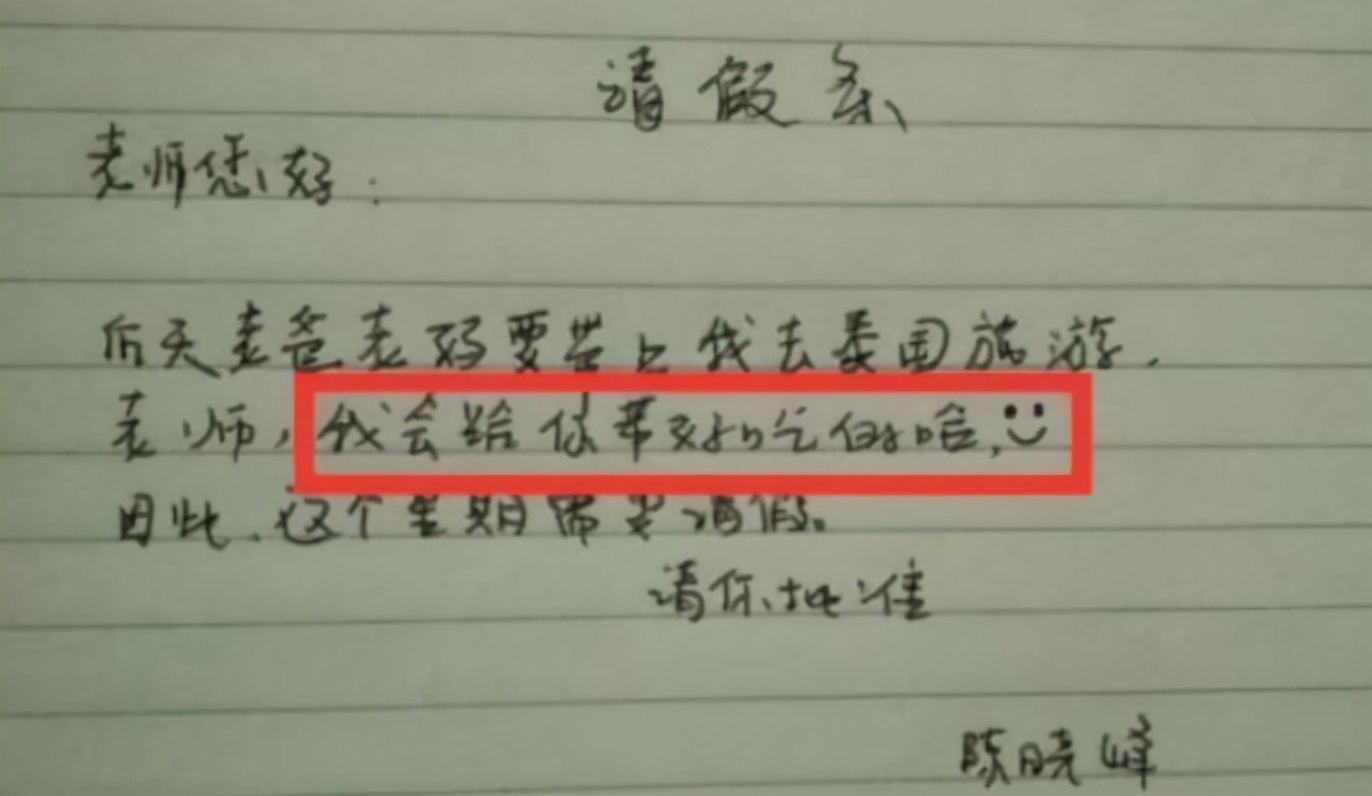 请假条
老师您好：
后天老爸老妈要带上我去泰国旅游.
老师,我会给你带好吃的哈,
因此.这个星期需要请假。
请你批准
陈晓峰